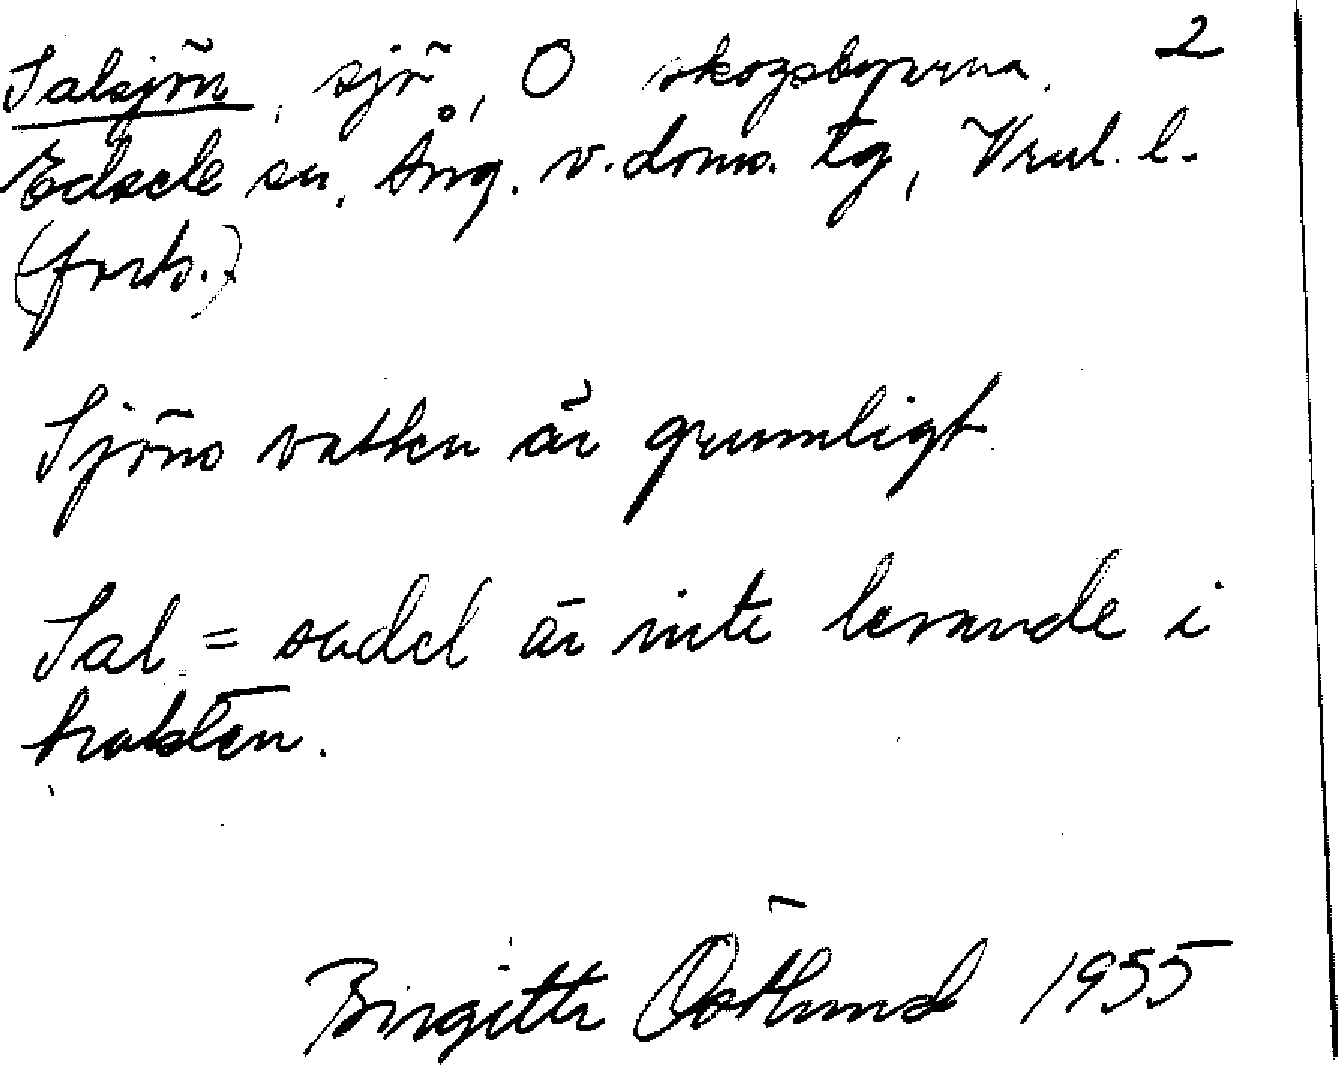 Salsjön, sjö, O skogsbyarna. 2
Edsele sn. Ång. v. doms. tg, Vnul. l.
(forts.)
Sjöns vatten är grumligt.
Sal = sadel är inte levande i
trakten.
Birgitta Östlund 1955